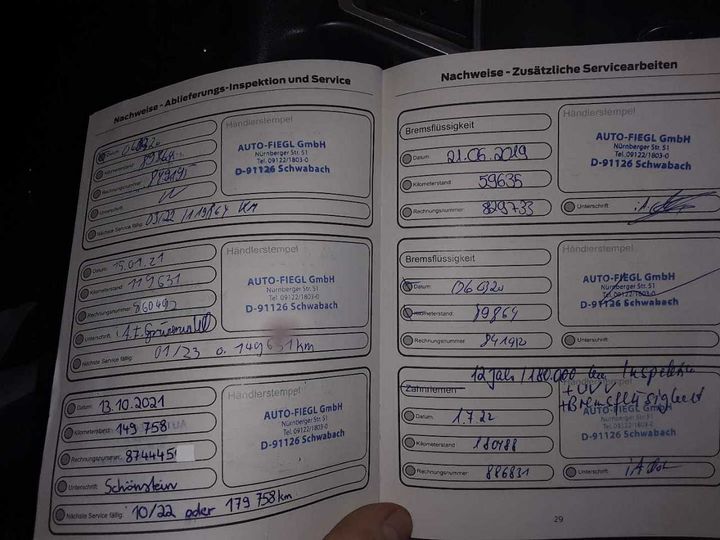 Nachweise - Ablieferungs-Inspektion und Service
Datum:
Kilometerstand: 89864
Rechnungsnummer:
Unterschrift:
Nächste Service fällig: 03/22 / 119864 KM
Händlerstempel
AUTO-FIEGL GmbH
Nürnberger Str. 51
Tel. 09122/1803-0
D-91126 Schwabach
Datum: 15.01.21
Kilometerstand: 119631
Rechnungsnummer: 860492
Unterschrift:
Nächste Service fällig: 01/23 o. 149631 km
Händlerstempel
AUTO-FIEGL GmbH
Nürnberger Str. 51
Tel. 09122/1803-0
D-91126 Schwabach
Datum: 13.10.2021
Kilometerstand: 149 758
Rechnungsnummer: 874445
Unterschrift: Schönstein
Nächste Service fällig: 10/22 oder 179 758 km
Händlerstempel
AUTO-FIEGL GmbH
Nürnberger Str. 51
Tel. 09122/1803-0
D-91126 Schwabach
Nachweise - Zusätzliche Servicearbeiten
Bremsflüssigkeit
Datum: 21.06.2019
Kilometerstand: 59635
Rechnungsnummer: 829733
Händlerstempel
AUTO-FIEGL GmbH
Nürnberger Str. 51
Tel. 09122/1803-0
D-91126 Schwabach
Unterschrift: i.A.
Bremsflüssigkeit
Datum:
Kilometerstand: 89864
Rechnungsnummer:
Händlerstempel
AUTO-FIEGL GmbH
Nürnberger Str. 51
Tel. 09122/1803-0
D-91126 Schwabach
Unterschrift:
12 Jahr / 180.000 km Inspektion
Zahnriemen
+ Bremsflüssigkeit
Datum: 1.7.22
Kilometerstand: 180488
Rechnungsnummer: 886831
AUTO-FIEGL GmbH
Nürnberger Str. 51
Tel. 09122/1803-0
D-91126 Schwabach
Unterschrift: i.A
29